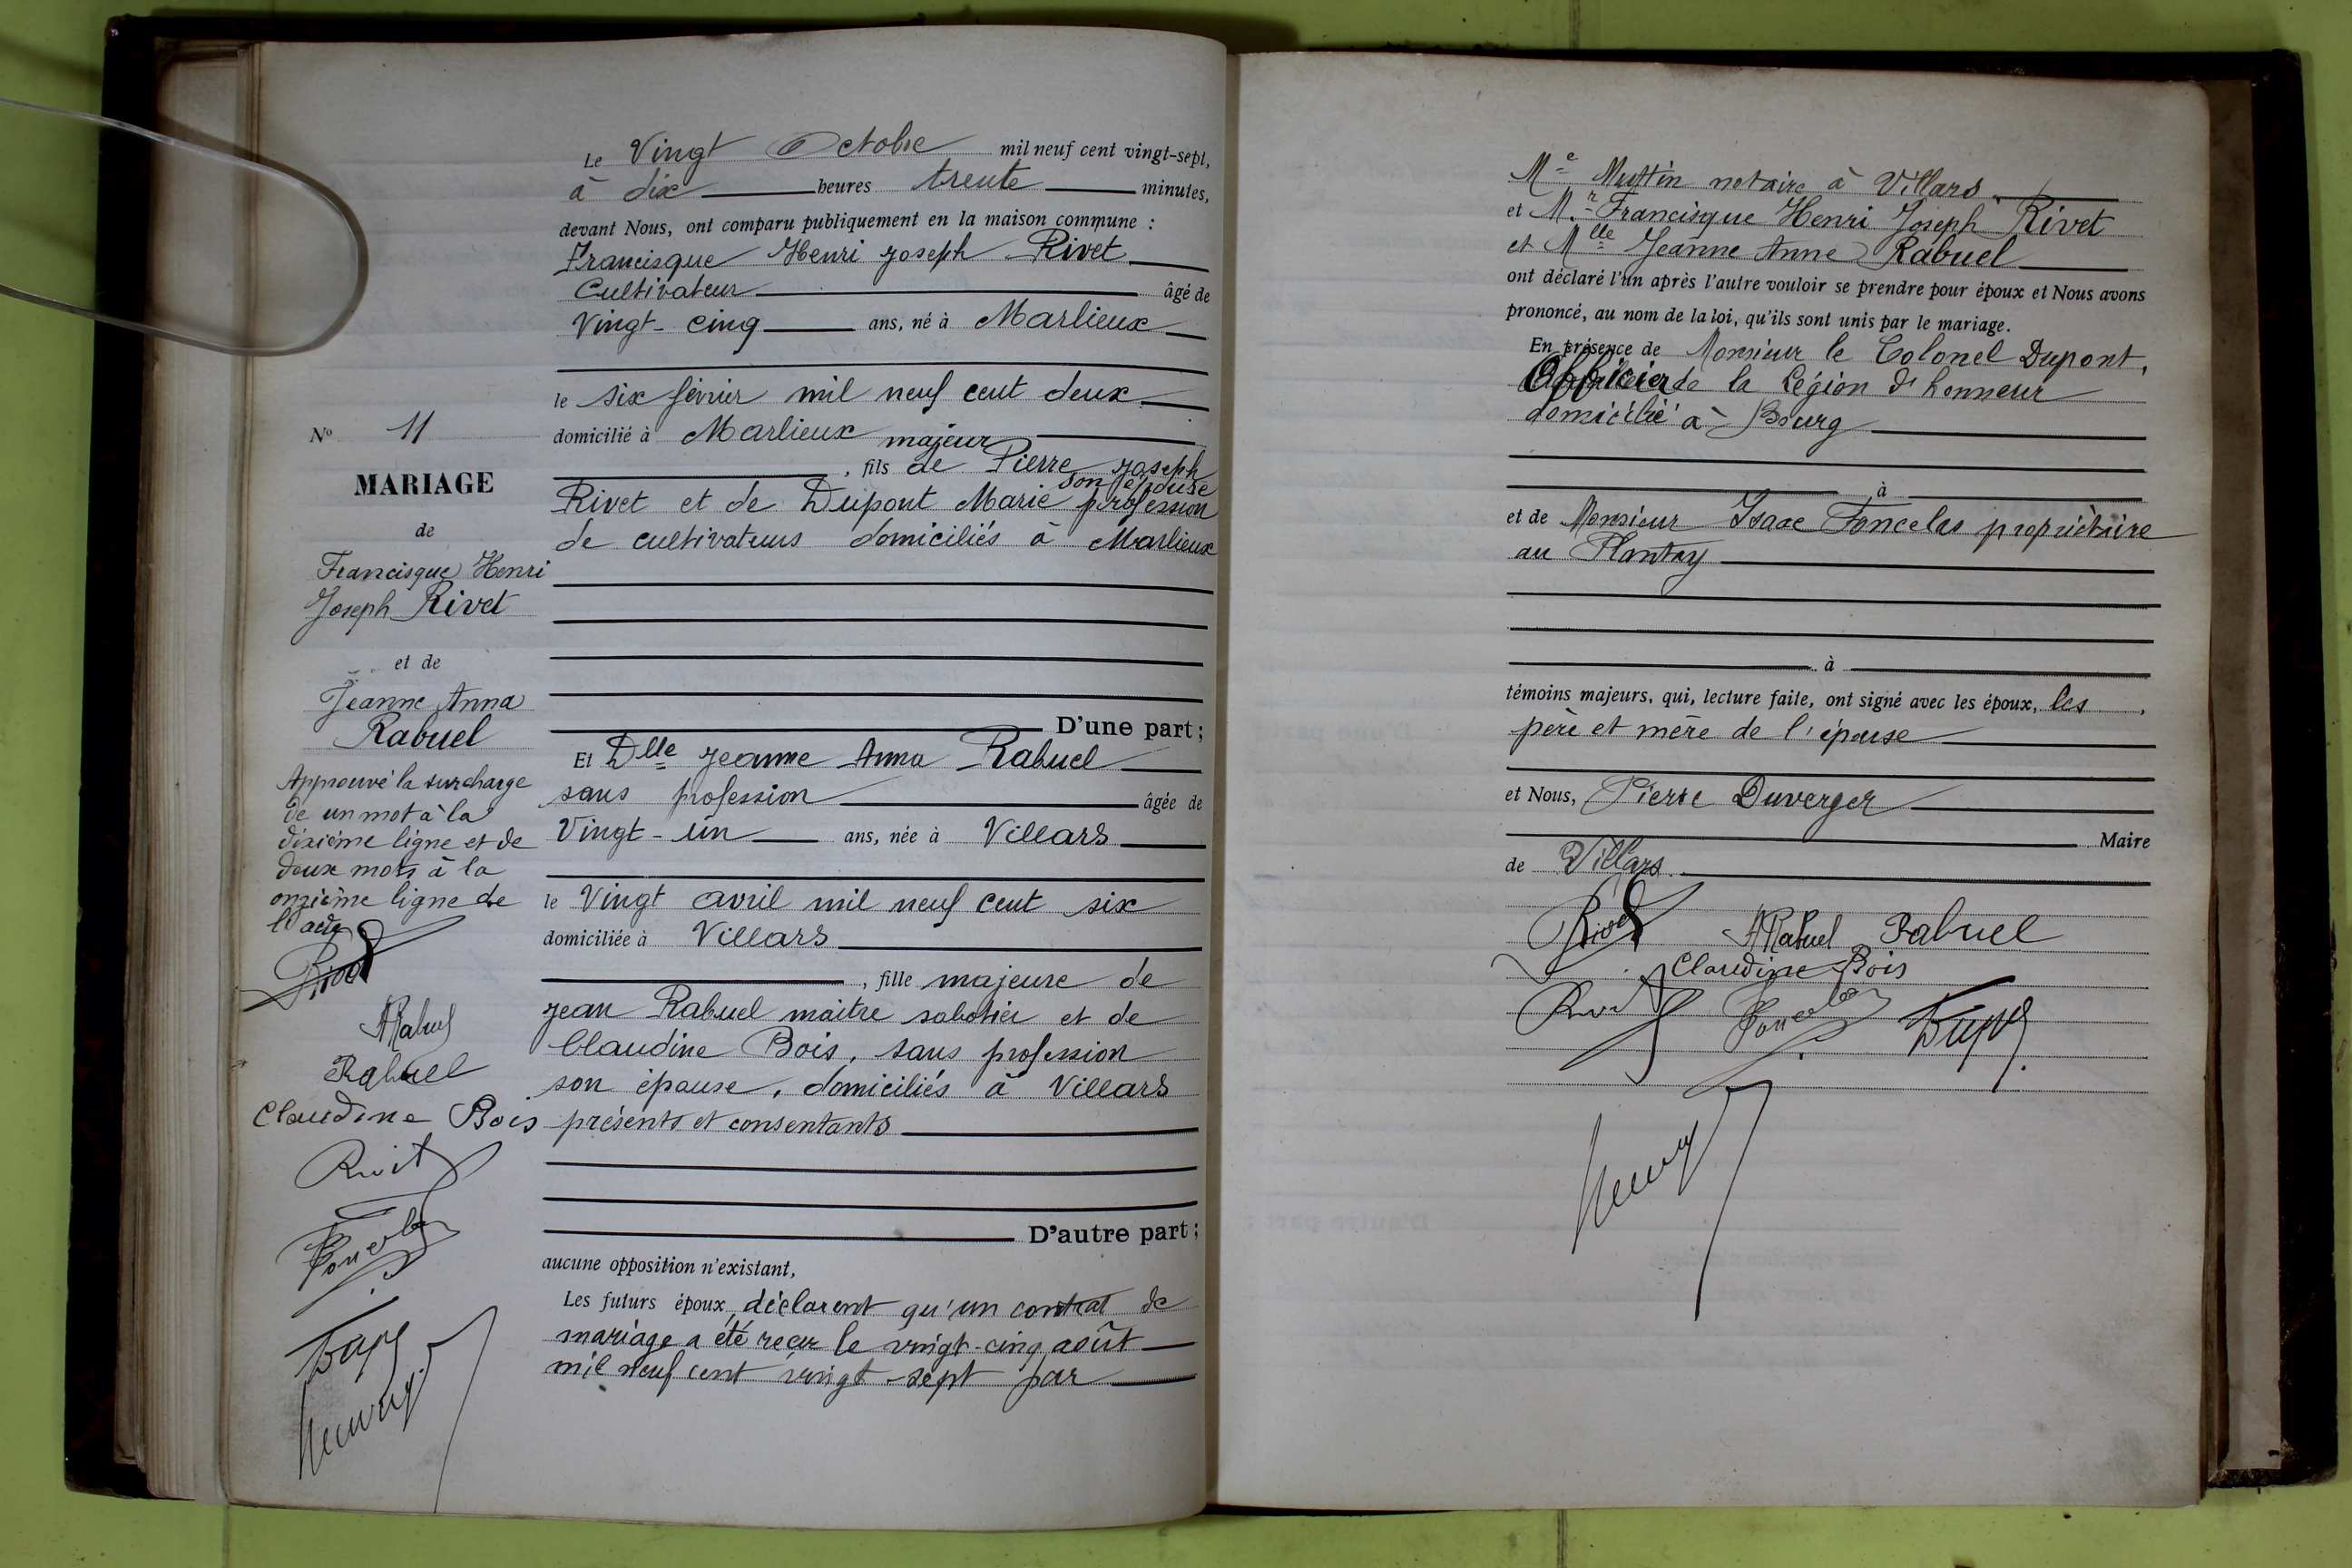 N° 11
MARIAGE
de
Francisque Henri
Joseph Rivet
et de
Jeanne Anna
Rabuel
Approuvé la surcharge
de un mot à la
dixième ligne et de
deux mots à la
onzième ligne de
l'acte
Rivet
ARabuel
Rabuel
Claudine Bois
Le Vingt Octobre mil neuf cent vingt-sept,
à dix heures trente minutes,
devant Nous, ont comparu publiquement en la maison commune :
Francisque Henri Joseph Rivet
Cultivateur âgé de
Vingt-cinq ans, né à Marlieux
le six février mil neuf cent deux
domicilié à Marlieux majeur
, fils de Pierre Joseph
son épouse
Rivet et de Dupont Marie profession
de cultivateurs domiciliés à Marlieux
D'une part ;
Et Dlle Jeanne Anna Rabuel
sans profession âgée de
Vingt-un ans, née à Villars
le Vingt avril mil neuf cent six
domiciliée à Villars
, fille majeure de
Jean Rabuel maitre sabotier et de
Claudine Bois, sans profession
son épouse, domiciliés à Villars
présents et consentants
D'autre part ;
aucune opposition n'existant,
Les futurs époux déclarent qu'un contrat de
mariage a été reçu le vingt-cinq août
mil neuf cent vingt-sept par
Me Mustin notaire à Villars
et Mr Francisque Henri Joseph Rivet
et Mlle Jeanne Anne Rabuel
ont déclaré l'un après l'autre vouloir se prendre pour époux et Nous avons
prononcé, au nom de la loi, qu'ils sont unis par le mariage.
En présence de Monsieur le Colonel Dupont,
Officier de la Légion d'honneur
domicilié à Bourg
à
et de Monsieur Isaac Foncelas propriètaire
au Plantay
à
témoins majeurs, qui, lecture faite, ont signé avec les époux, les ,
père et mère de l'épouse
et Nous, Pierre Duverger
Maire
de Villars.
Rivet ARabuel Rabuel
Claudine Bois